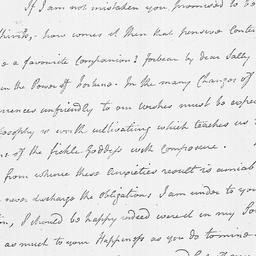 If I am not mistaken you promised to be
think,- how comes it then that pensive Conte
e a favourite companion? forbear my dear Sally
in the Power of fortune. In the many Changes of
urrences unfriendly to our wishes must be expec
losophy is worth cultivating which teaches us
ns of the fickle Goddess with composure.
from whence these anxieties result is amiab
never discharge the obligations I am under to you
on, I should be happy indeed were it in my Po
as much to your Happiness as you do to mine